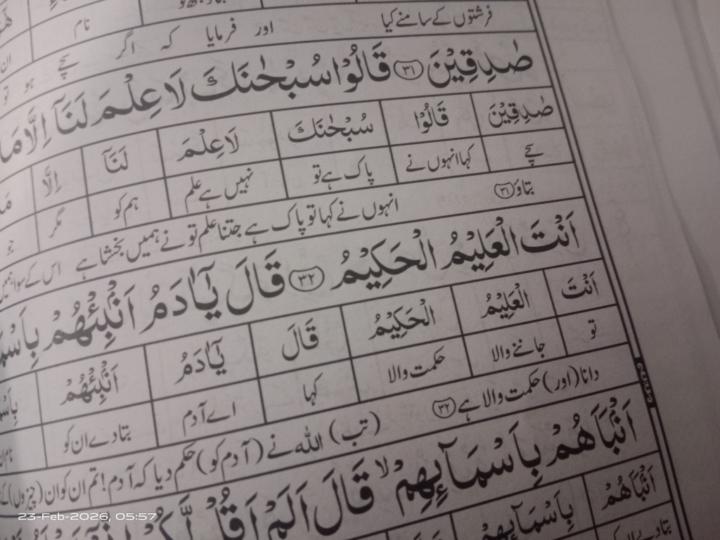 فرشتوں کے سامنے کیا اور فرمایا کہ اگر سچے ہو تو
صٰدِقِيْنَ ﴿٣١﴾ قَالُوْا سُبْحٰنَكَ لَا عِلْمَ لَنَآ اِلَّا مَا
صٰدِقِيْنَ قَالُوْا سُبْحٰنَكَ لَا عِلْمَ لَنَآ اِلَّا
سچے کہا انہوں نے پاک ہے تو نہیں ہے علم ہم کو مگر جو
بتاؤ ﴿٣١﴾ انہوں نے کہا تو پاک ہے جتنا علم تو نے ہمیں بخشا ہے اس کے سوا ہمیں
اَنْتَ الْعَلِيْمُ الْحَكِيْمُ ﴿٣٢﴾ قَالَ يٰٓاٰدَمُ اَنْۢبِئْهُمْ
اَنْتَ الْعَلِيْمُ الْحَكِيْمُ قَالَ يٰٓاٰدَمُ اَنْۢبِئْهُمْ
تو جاننے والا حکمت والا کہا اے آدم بتا دے ان کو
دانا (اور) حکمت والا ہے ﴿٣٢﴾ (تب) اللہ نے (آدم کو) حکم دیا کہ آدم! تم ان کو ان (چیزوں) کے
اَنْۢبَاَهُمْ بِاَسْمَآىِٕهِمْ ۙ قَالَ اَلَمْ اَقُلْ لَّكُمْ
اَنْۢبَاَهُمْ بِاَسْمَآىِٕهِمْ
23-Feb-2026, 05:57